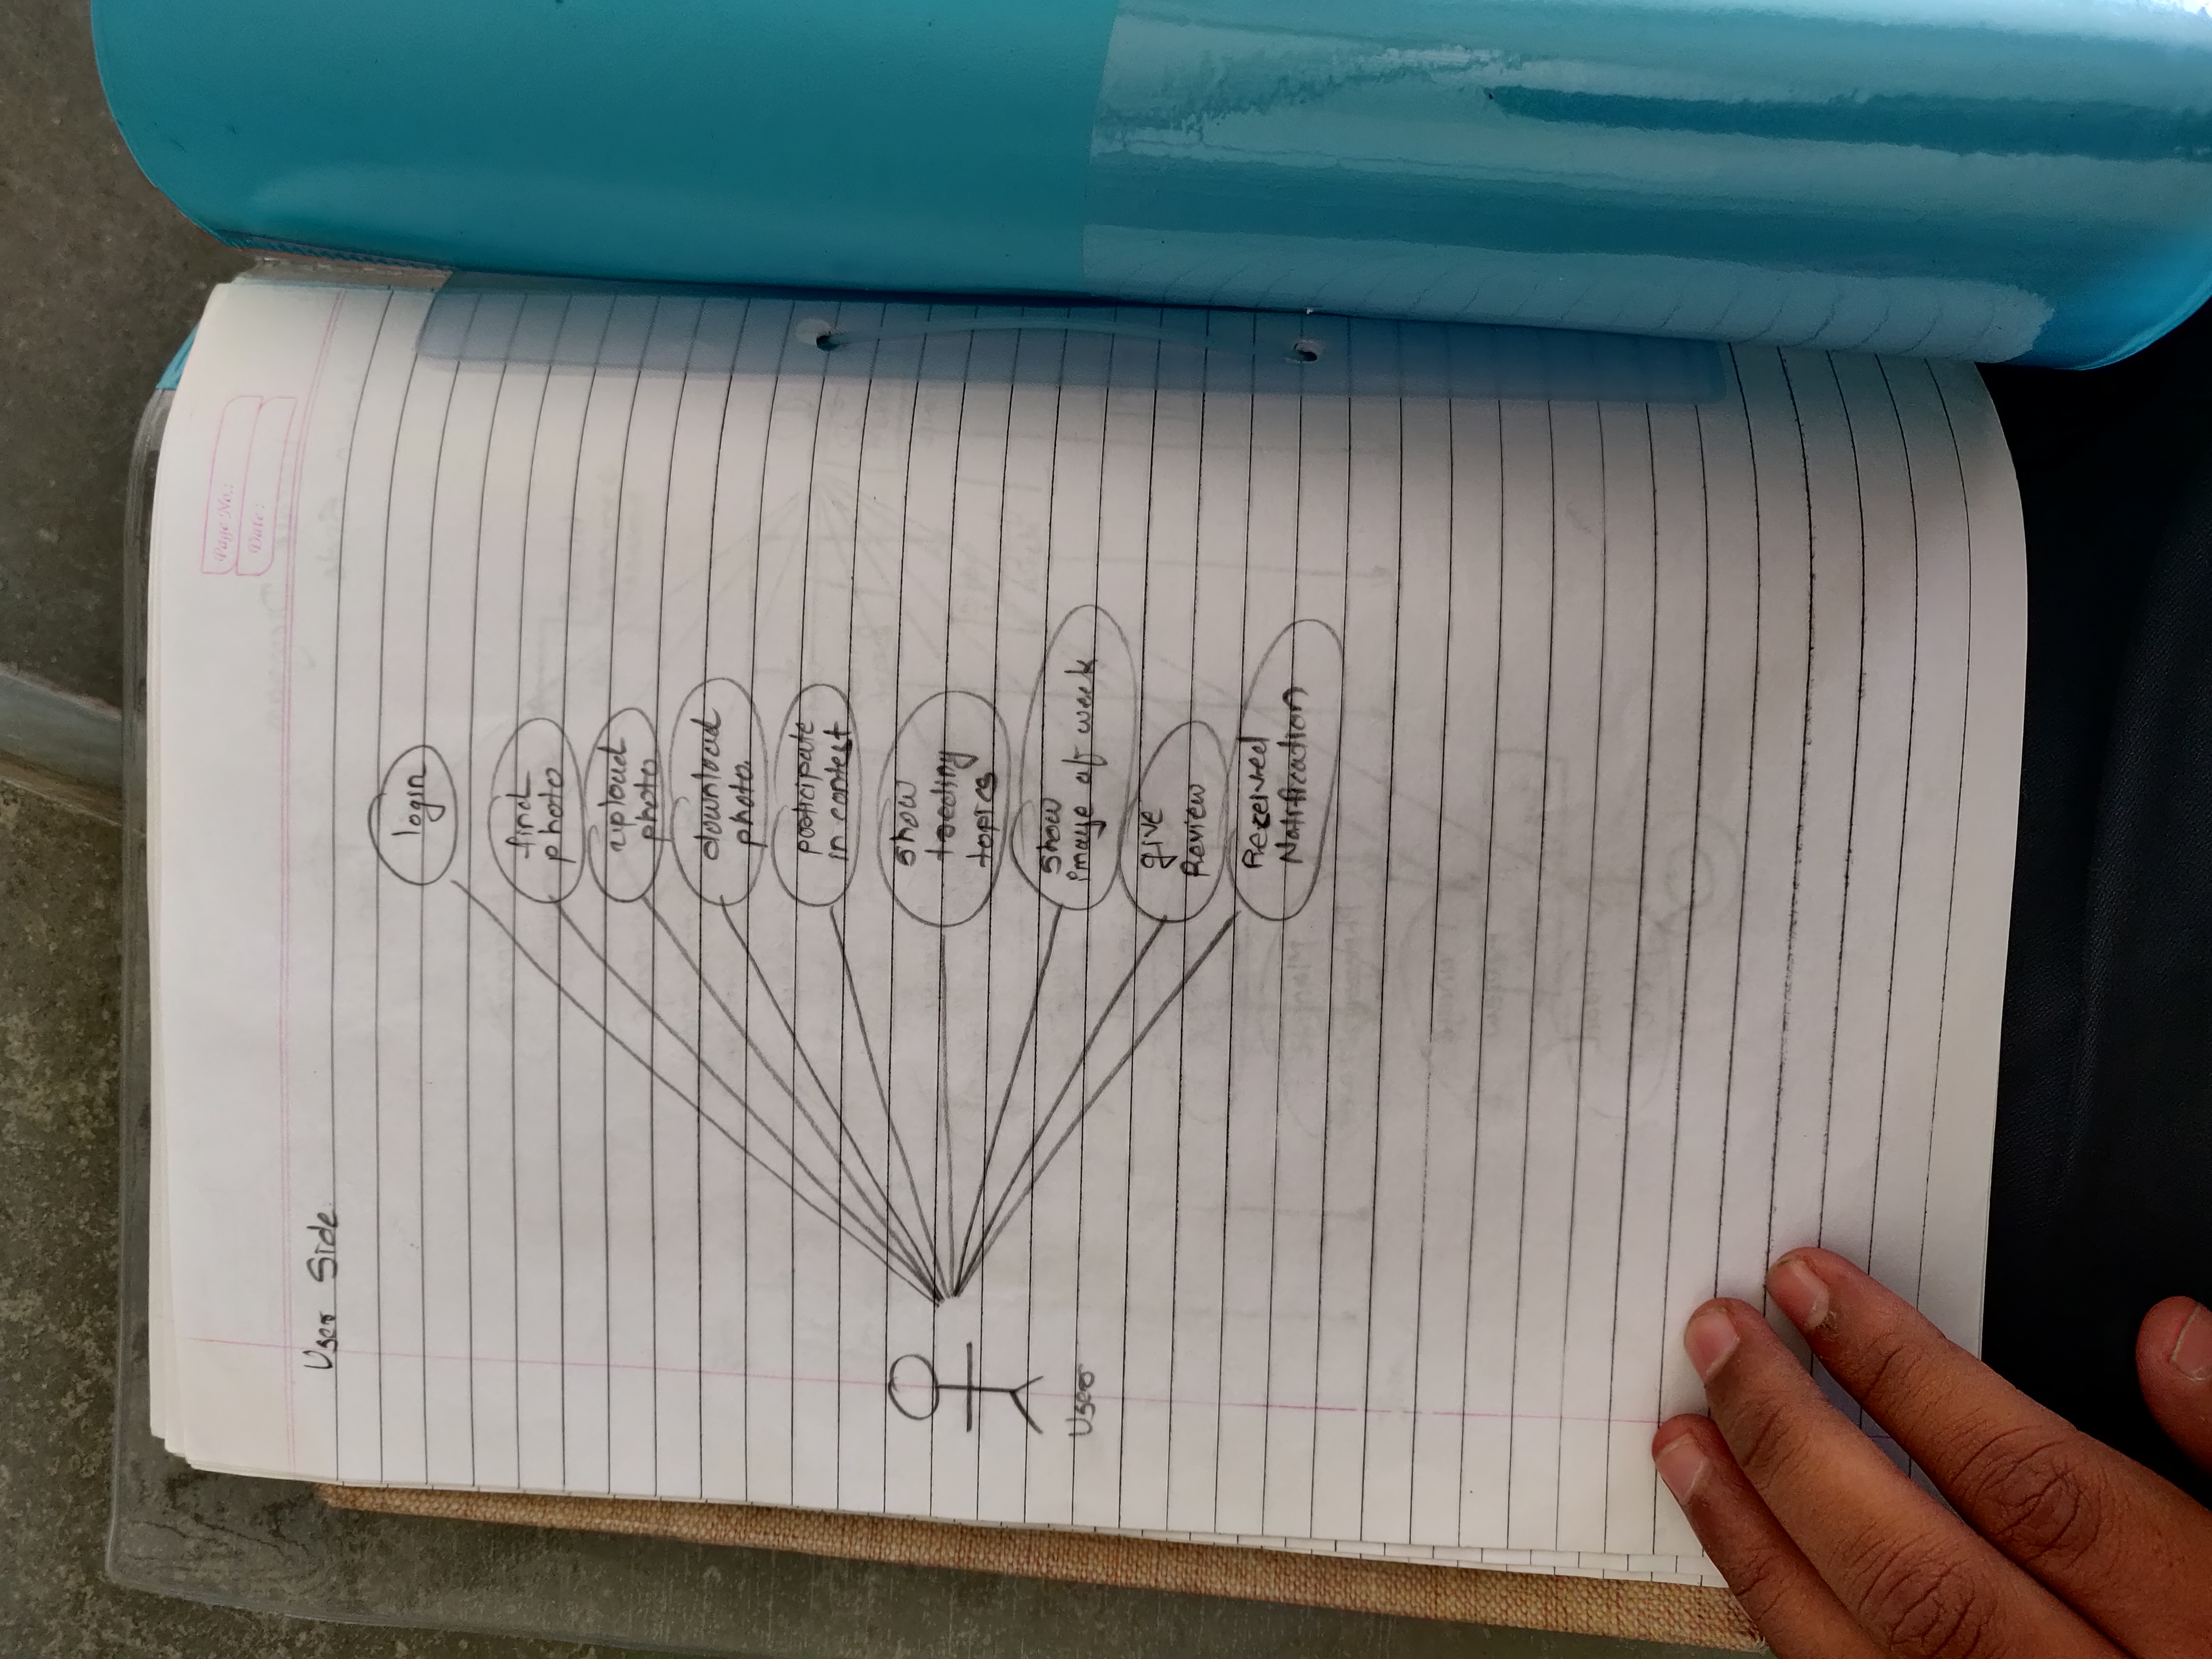 Page No.:
Date:
User Side
login
find
photo
upload
photo
download
photo
participate
in contest
show
treding
topics
show
image of week
give
Review
Received
Notification
User